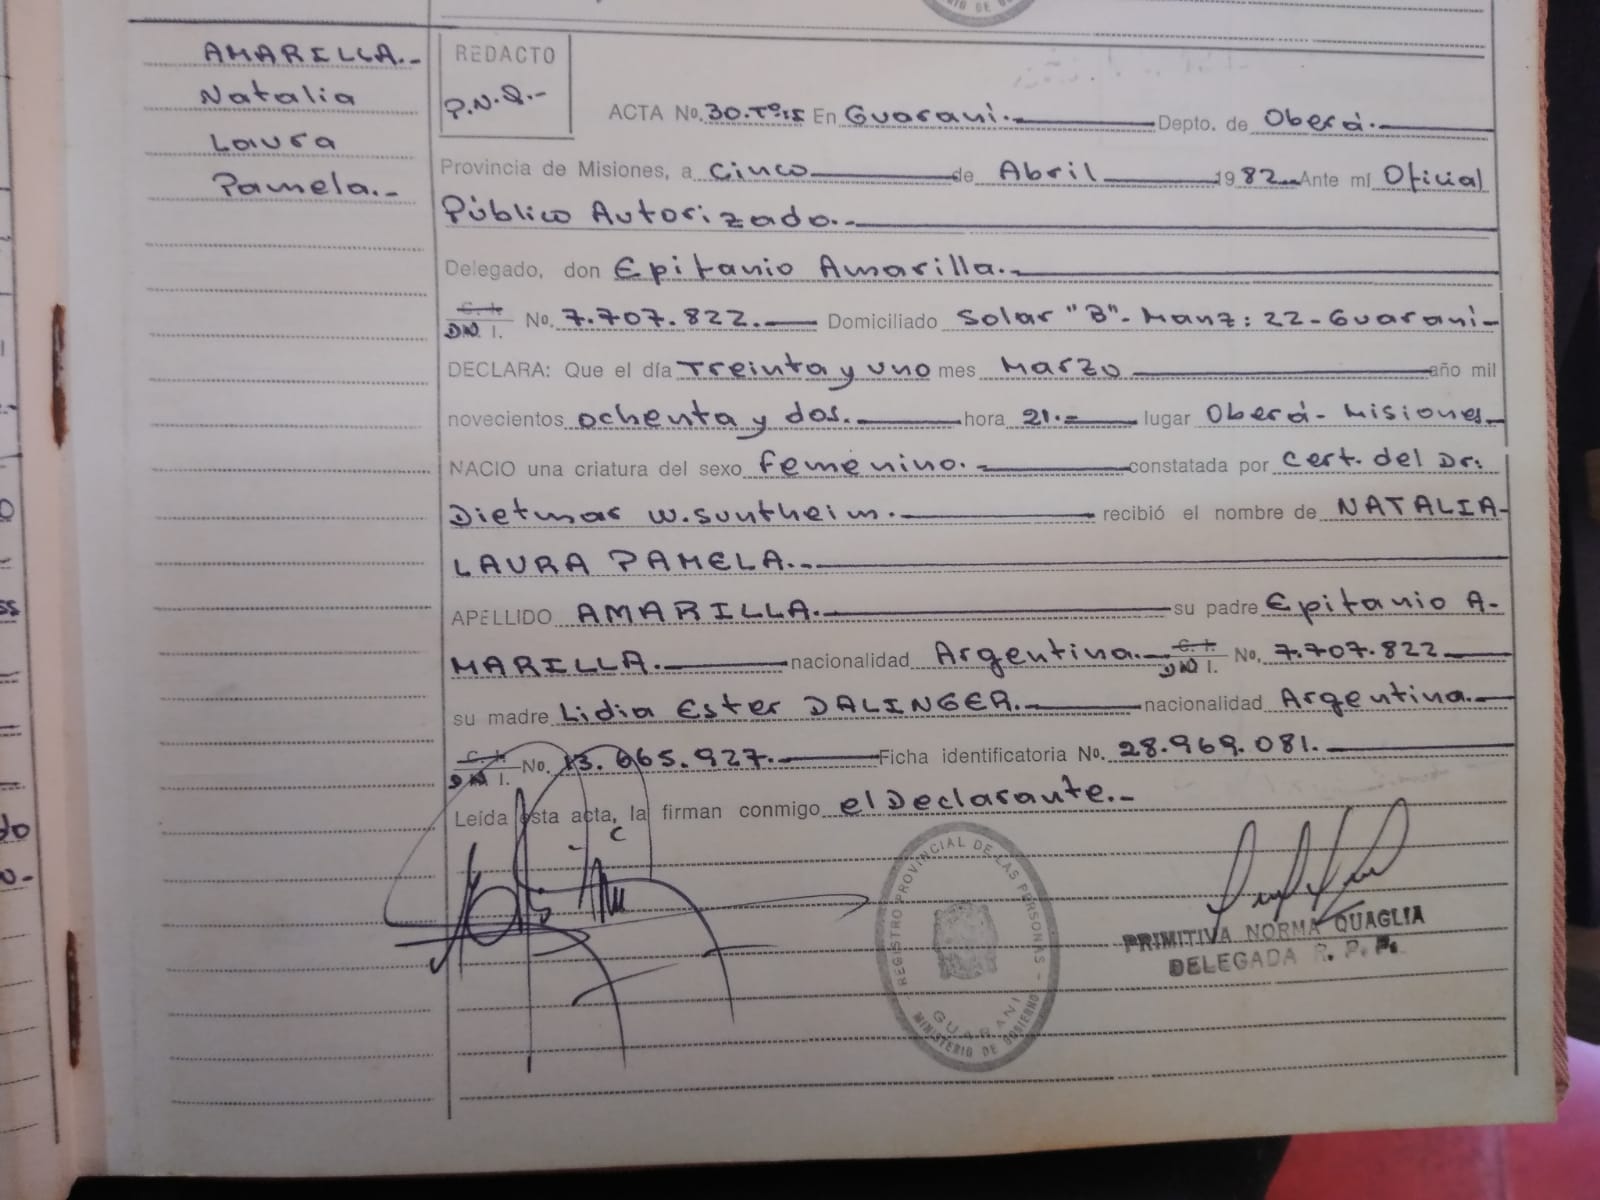 AMARILLA.-
Natalia
Laura
Pamela.-
REDACTO
P.N.Q.-
ACTA No. 30.Tº:15 En Guaraní.- Depto. de Oberá.-
Provincia de Misiones, a Cinco de Abril 1982 Ante mí Oficial
Público Autorizado.-
Delegado, don Epifanio Amarilla.-
C. I.
DNI. No. 7.707.822.- Domiciliado Solar "B"- Manz: 22-Guaraní-
DECLARA: Que el día Treinta y uno mes Marzo año mil
novecientos ochenta y dos.- hora 21.- lugar Oberá- Misiones-
NACIO una criatura del sexo femenino.- constatada por Cert. del Dr:
Dietmar W. Suntheim.- recibió el nombre de NATALIA-
LAURA PAMELA.-
APELLIDO AMARILLA.- su padre Epifanio A-
MARILLA.- nacionalidad Argentina.- C. I. DNI. No. 7.707.822
su madre Lidia Ester DALINGER.- nacionalidad Argentina.-
C. I. DNI. No. 13.665.927.- Ficha identificatoria No. 28.969.081.-
Leída esta acta, la firman conmigo el Declarante.-
REGISTRO PROVINCIAL DE LAS PERSONAS -
GUARANI
MINISTERIO DE GOBIERNO
PRIMITIVA NORMA QUAGLIA
DELEGADA R. P. P.